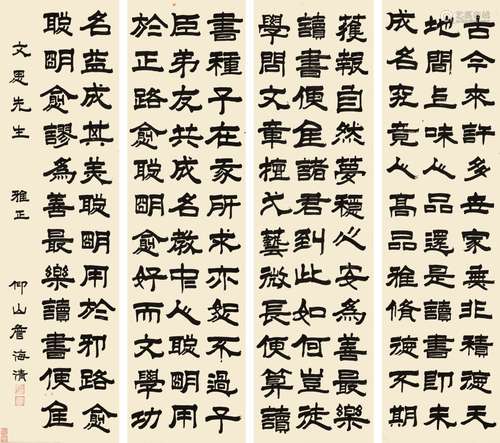 古今來許多世家無非積德天
地間上味人品還是讀書即未
成名究竟人高品雅修德不期
獲報自然夢穩心安為善最樂
讀書便佳諸君到此如何豈徒
學問文章擅弌藝微長便算讀
書種子在家所求亦恕不過子
臣弟友共成名教中人聰明用
於正路愈聰明愈好而文學功
名益成其美聰明用於邪路愈
聰明愈謬為善最樂讀書便佳
文恩先生 雅正 仰山詹海清